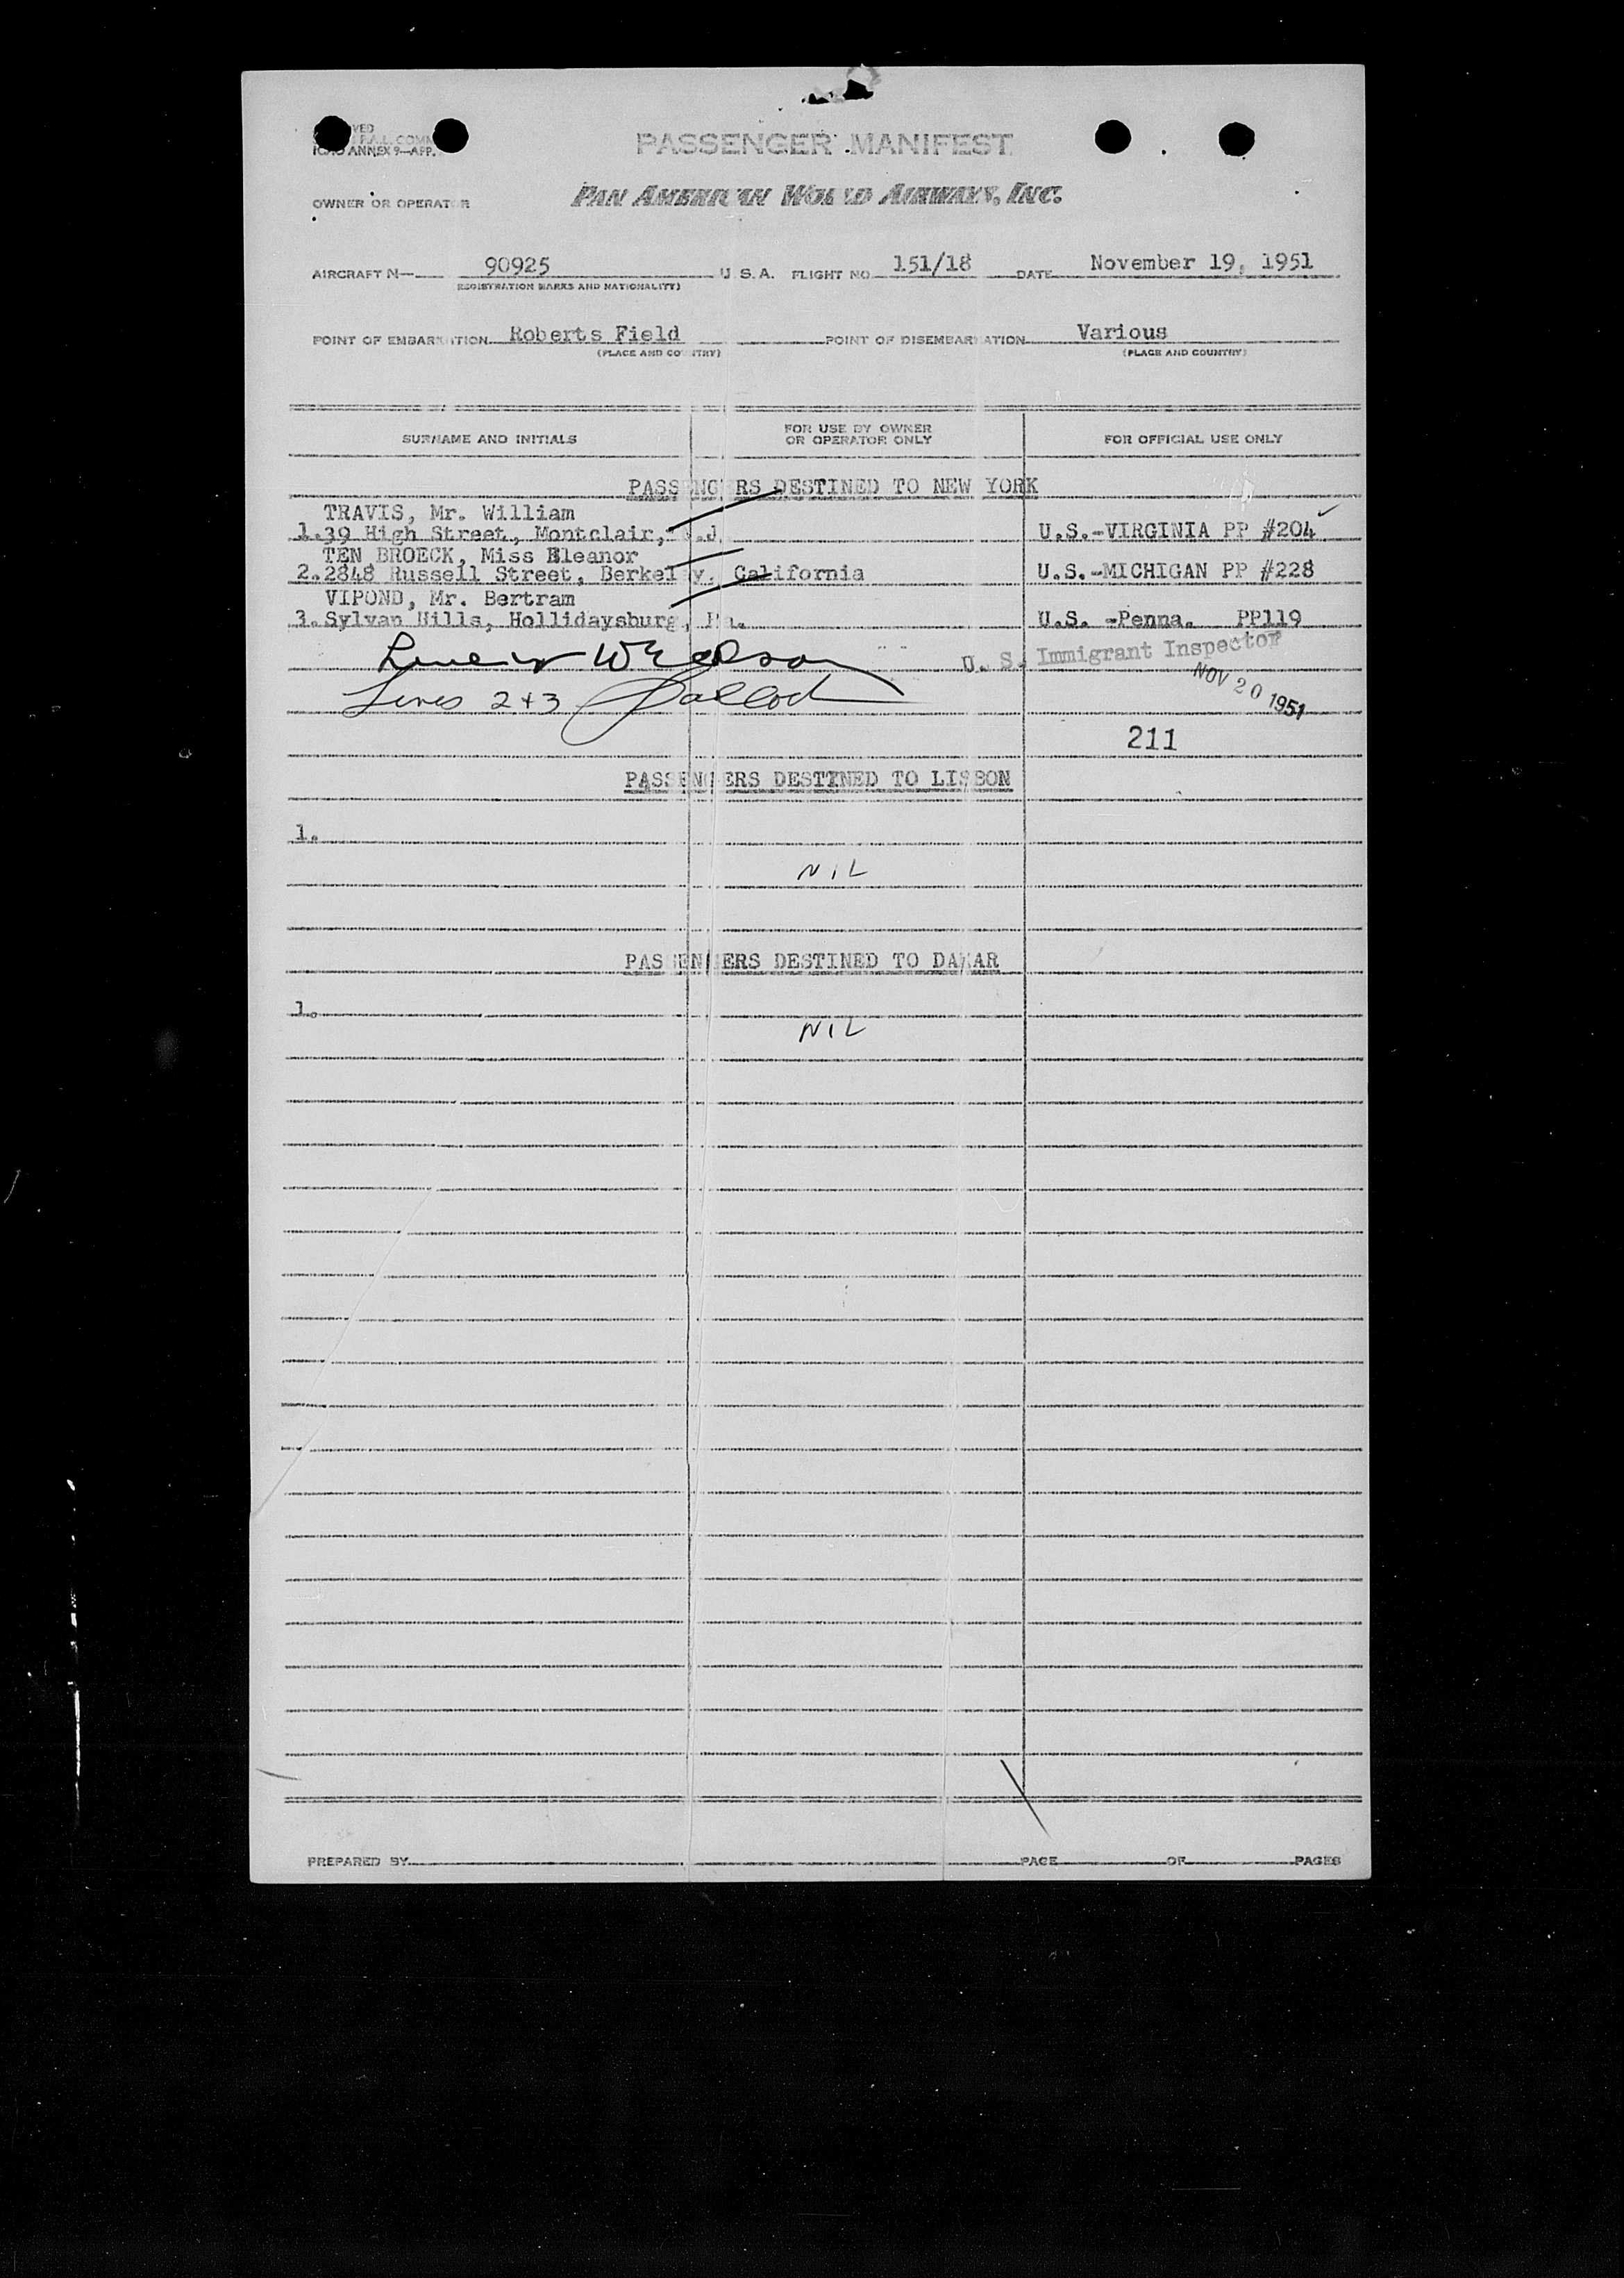 PASSENGER MANIFEST
ICAO ANNEX 9—APP.
OWNER OR OPERATOR PAN AMERICAN WORLD AIRWAYS, INC.
AIRCRAFT N— 90925 U.S.A. FLIGHT NO. 151/18 DATE November 19, 1951
(REGISTRATION MARKS AND NATIONALITY)
POINT OF EMBARKATION Roberts Field POINT OF DISEMBARKATION Various
(PLACE AND COUNTRY) (PLACE AND COUNTRY)
SURNAME AND INITIALS FOR USE BY OWNER OR OPERATOR ONLY FOR OFFICIAL USE ONLY
PASSENGERS DESTINED TO NEW YORK
TRAVIS, Mr. William
1. 39 High Street, Montclair, N.J. U.S.-VIRGINIA PP #204
TEN BROECK, Miss Eleanor
2. 2848 Russell Street, Berkeley, California U.S.-MICHIGAN PP #228
VIPOND, Mr. Bertram
3. Sylvan Hills, Hollidaysburg, Pa. U.S. -Penna. PP119
U. S. Immigrant Inspector
NOV 20 1951
Lines 2+3
211
PASSENGERS DESTINED TO LISBON
1.
NIL
PASSENGERS DESTINED TO DAKAR
1.
NIL
PREPARED BY PAGE OF PAGES